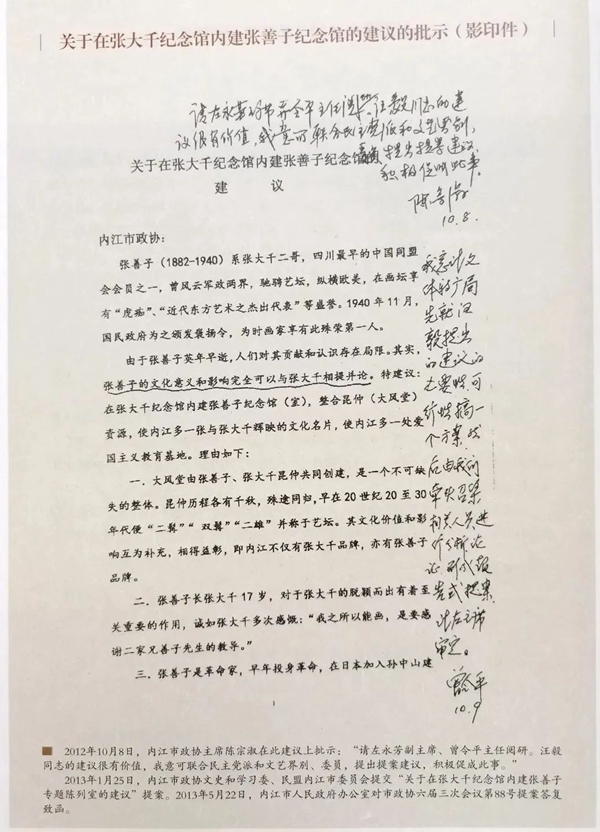 关于在张大千纪念馆内建张善子纪念馆的建议的批示（影印件）
请左永芳副主席、曾令平主任阅研。汪毅同志的建
议很有价值，我意可联合民主党派和文艺界别、
委员，提出提案建议，
积极促成此事。
陈宗淑
10.8.
关于在张大千纪念馆内建张善子纪念馆
建 议
内江市政协：
张善子（1882-1940）系张大千二哥，四川最早的中国同盟
会会员之一，曾风云军政两界，驰骋艺坛，纵横欧美，在画坛享
有“虎痴”、“近代东方艺术之杰出代表”等盛誉。1940年11月，
国民政府为之颁发褒扬令，为时画家享有此殊荣第一人。
由于张善子英年早逝，人们对其贡献和认识存在局限。其实，
张善子的文化意义和影响完全可以与张大千相提并论。特建议：
在张大千纪念馆内建张善子纪念馆（室），整合昆仲（大风堂）
资源，使内江多一张与张大千辉映的文化名片，使内江多一处爱
国主义教育基地。理由如下：
一、大风堂由张善子、张大千昆仲共同创建，是一个不可缺
失的整体。昆仲历程各有千秋，殊途同归，早在20世纪20至30
年代便“二髯”“双髯”“二雄”并称于艺坛。其文化价值和影
响互为补充，相得益彰，即内江不仅有张大千品牌，亦有张善子
品牌。
二、张善子长张大千17岁，对于张大千的脱颖而出有着至
关重要的作用，诚如张大千多次感慨：“我之所以能画，是要感
谢二家兄善子先生的教导。”
三、张善子是革命家，早年投身革命，在日本加入孙中山建
1
我意让文
体特广局
先就汪
毅提出
的建议的
必要性可
行性搞一
个方案，然
后由我们
牵头召集
相关人员进
行分析论
证，形成报
告或提案，
呈左主席
审定。
曾令平
10.9
2012年10月8日，内江市政协主席陈宗淑在此建议上批示：“请左永芳副主席、曾令平主任阅研。汪毅
同志的建议很有价值，我意可联合民主党派和文艺界别、委员，提出提案建议，积极促成此事。”
2013年1月25日，内江市政协文史和学习委、民盟内江市委员会提交“关于在张大千纪念馆内建张善子
专题陈列室的建议”提案。2013年5月22日，内江市人民政府办公室对市政协六届三次会议第88号提案答复
致函。